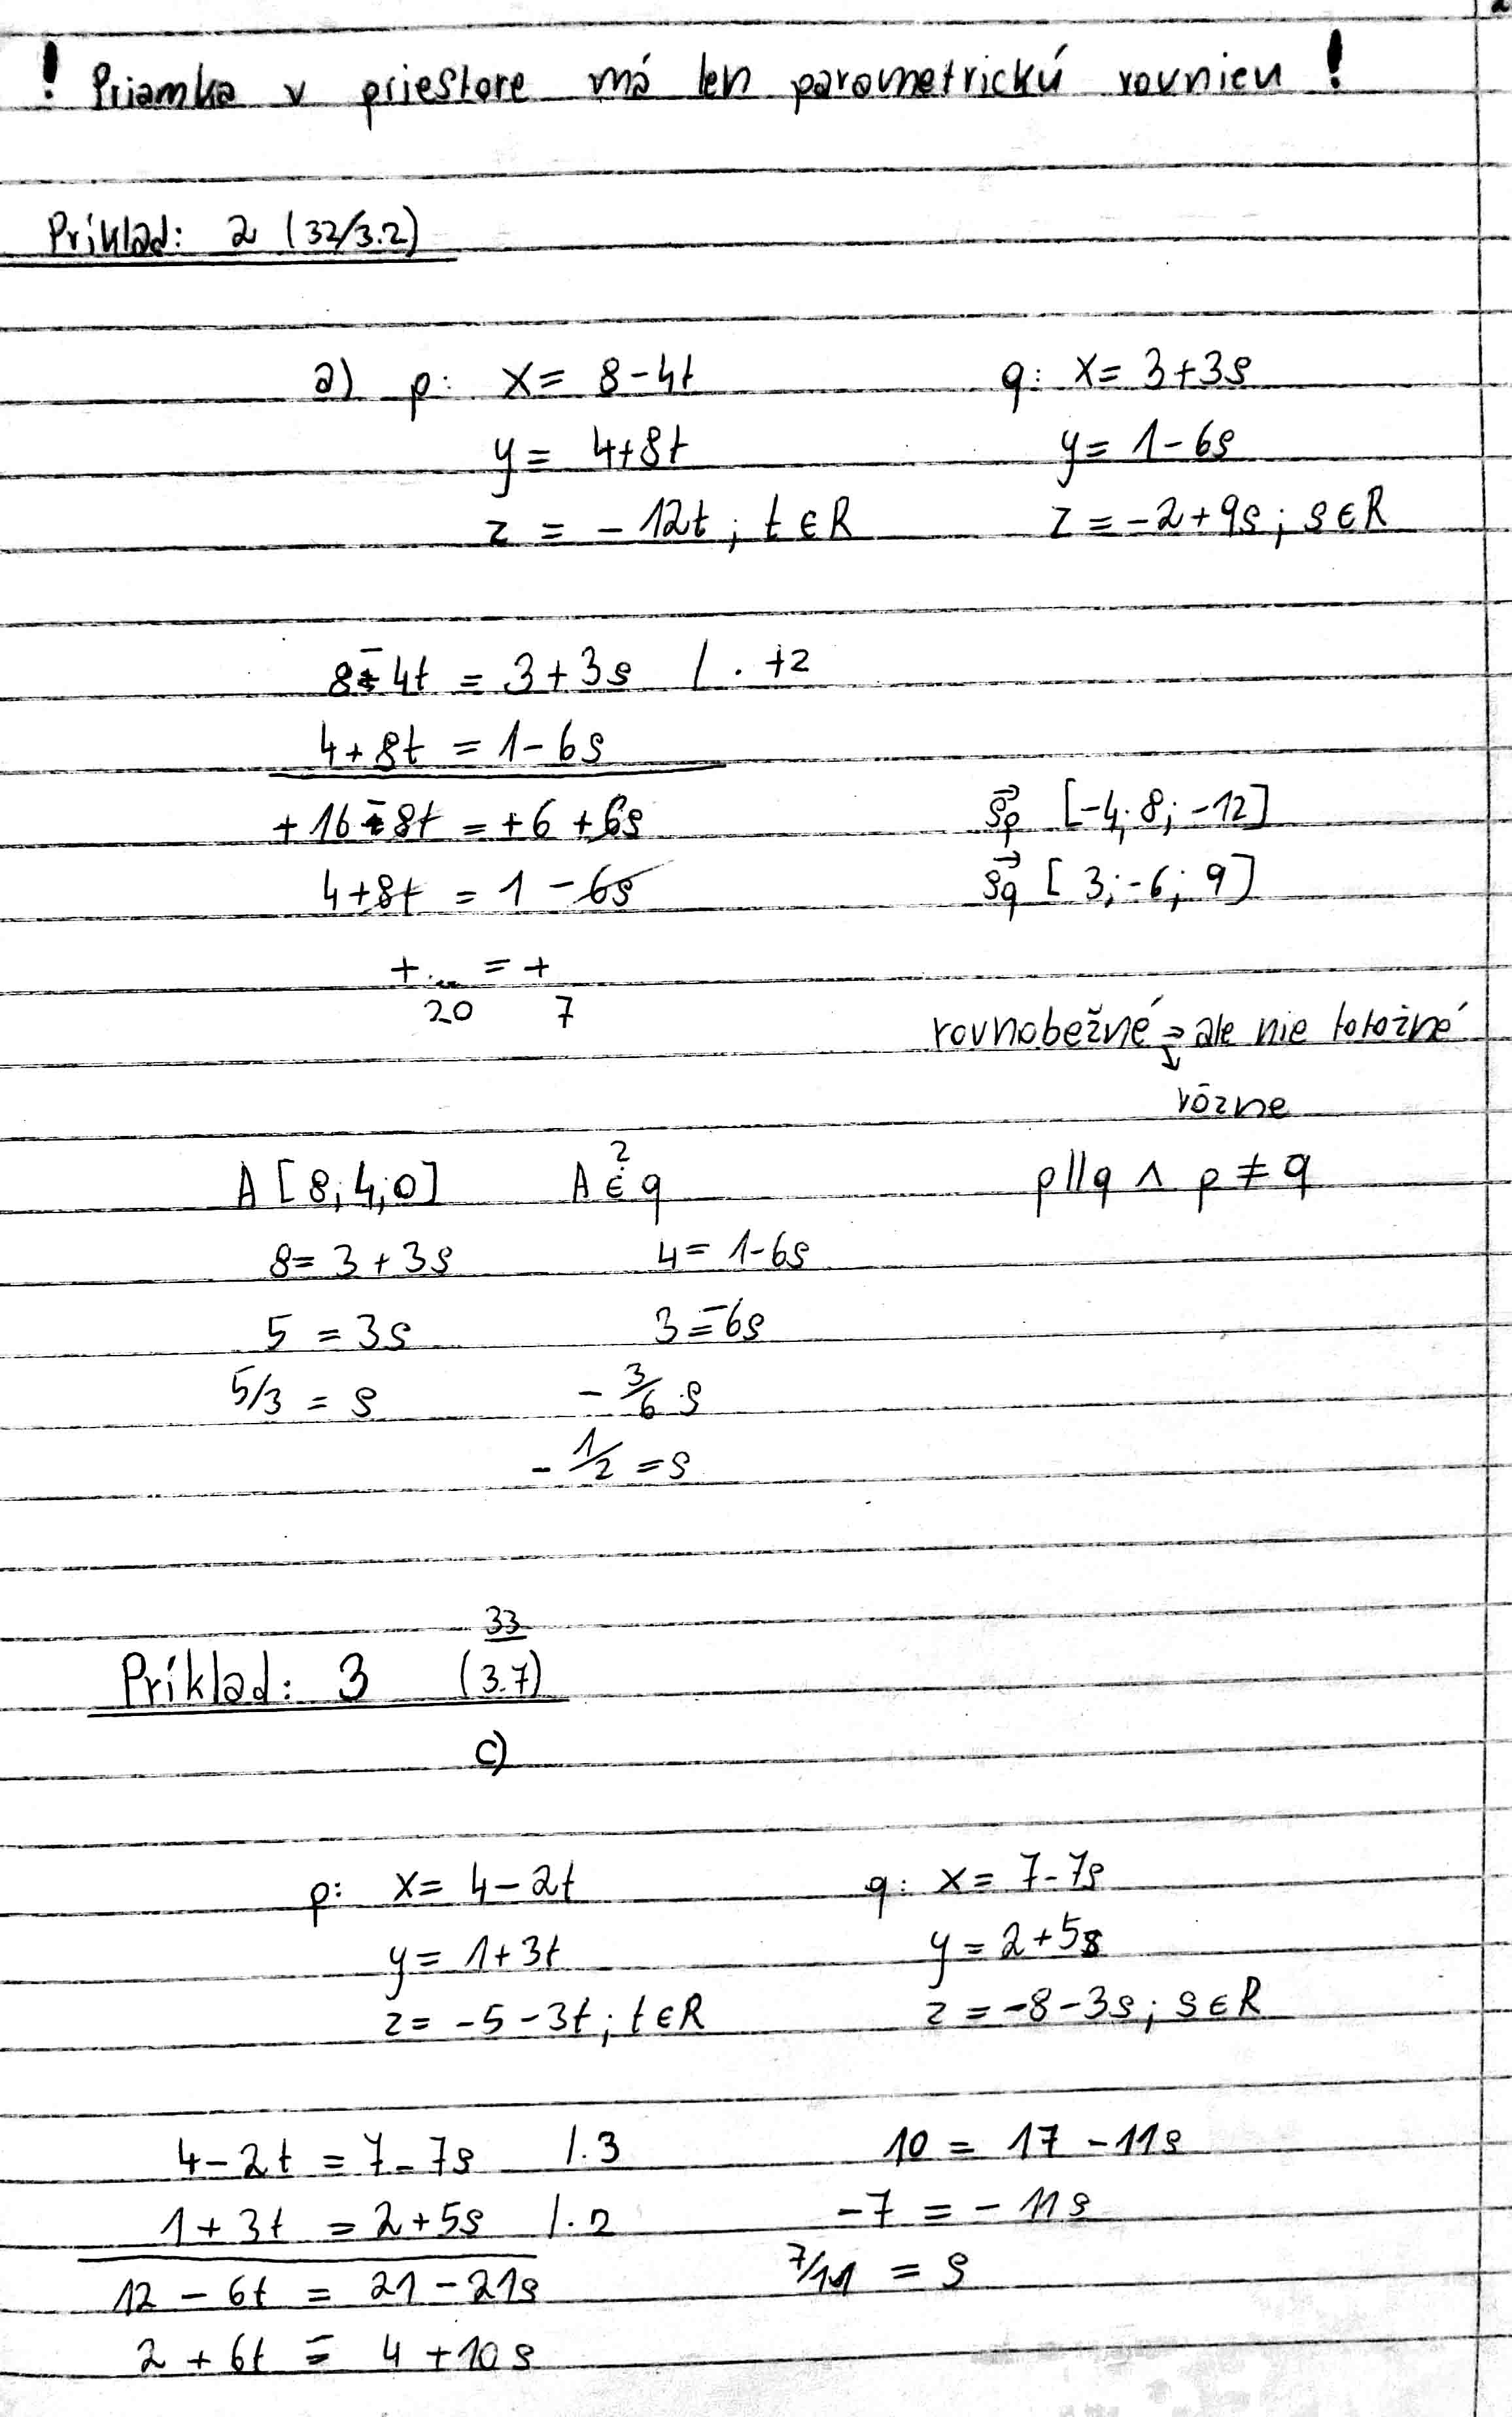 ! Priamka v priestore má len parametrickú rovnicu !
Príklad: 2 (32/3.2)
a) p: x = 8 - 4t q: x = 3 + 3s
y = 4 + 8t y = 1 - 6s
z = - 12t ; t ∈ R z = -2 + 9s ; s ∈ R
8 - 4t = 3 + 3s / . +2
4 + 8t = 1 - 6s
+ 16 - 8t = + 6 + 6s s⃗p [-4; 8; -12]
4 + 8t = 1 - 6s s⃗q [3; -6; 9]
+ .. = +
20 7
rovnobežné ⇒ ale nie totožné
↓
rôzne
A [8; 4; 0] A ∈? q p || q ∧ p ≠ q
8 = 3 + 3s 4 = 1 - 6s
5 = 3s 3 = -6s
5/3 = s - 3/6 s
- 1/2 = s
33
Príklad: 3 (3.7)
c)
p: x = 4 - 2t q: x = 7 - 7s
y = 1 + 3t y = 2 + 5s
z = -5 - 3t ; t ∈ R z = -8 - 3s ; s ∈ R
4 - 2t = 7 - 7s / . 3 10 = 17 - 11s
1 + 3t = 2 + 5s / . 2 -7 = - 11s
12 - 6t = 21 - 21s 7/11 = s
2 + 6t = 4 + 10s